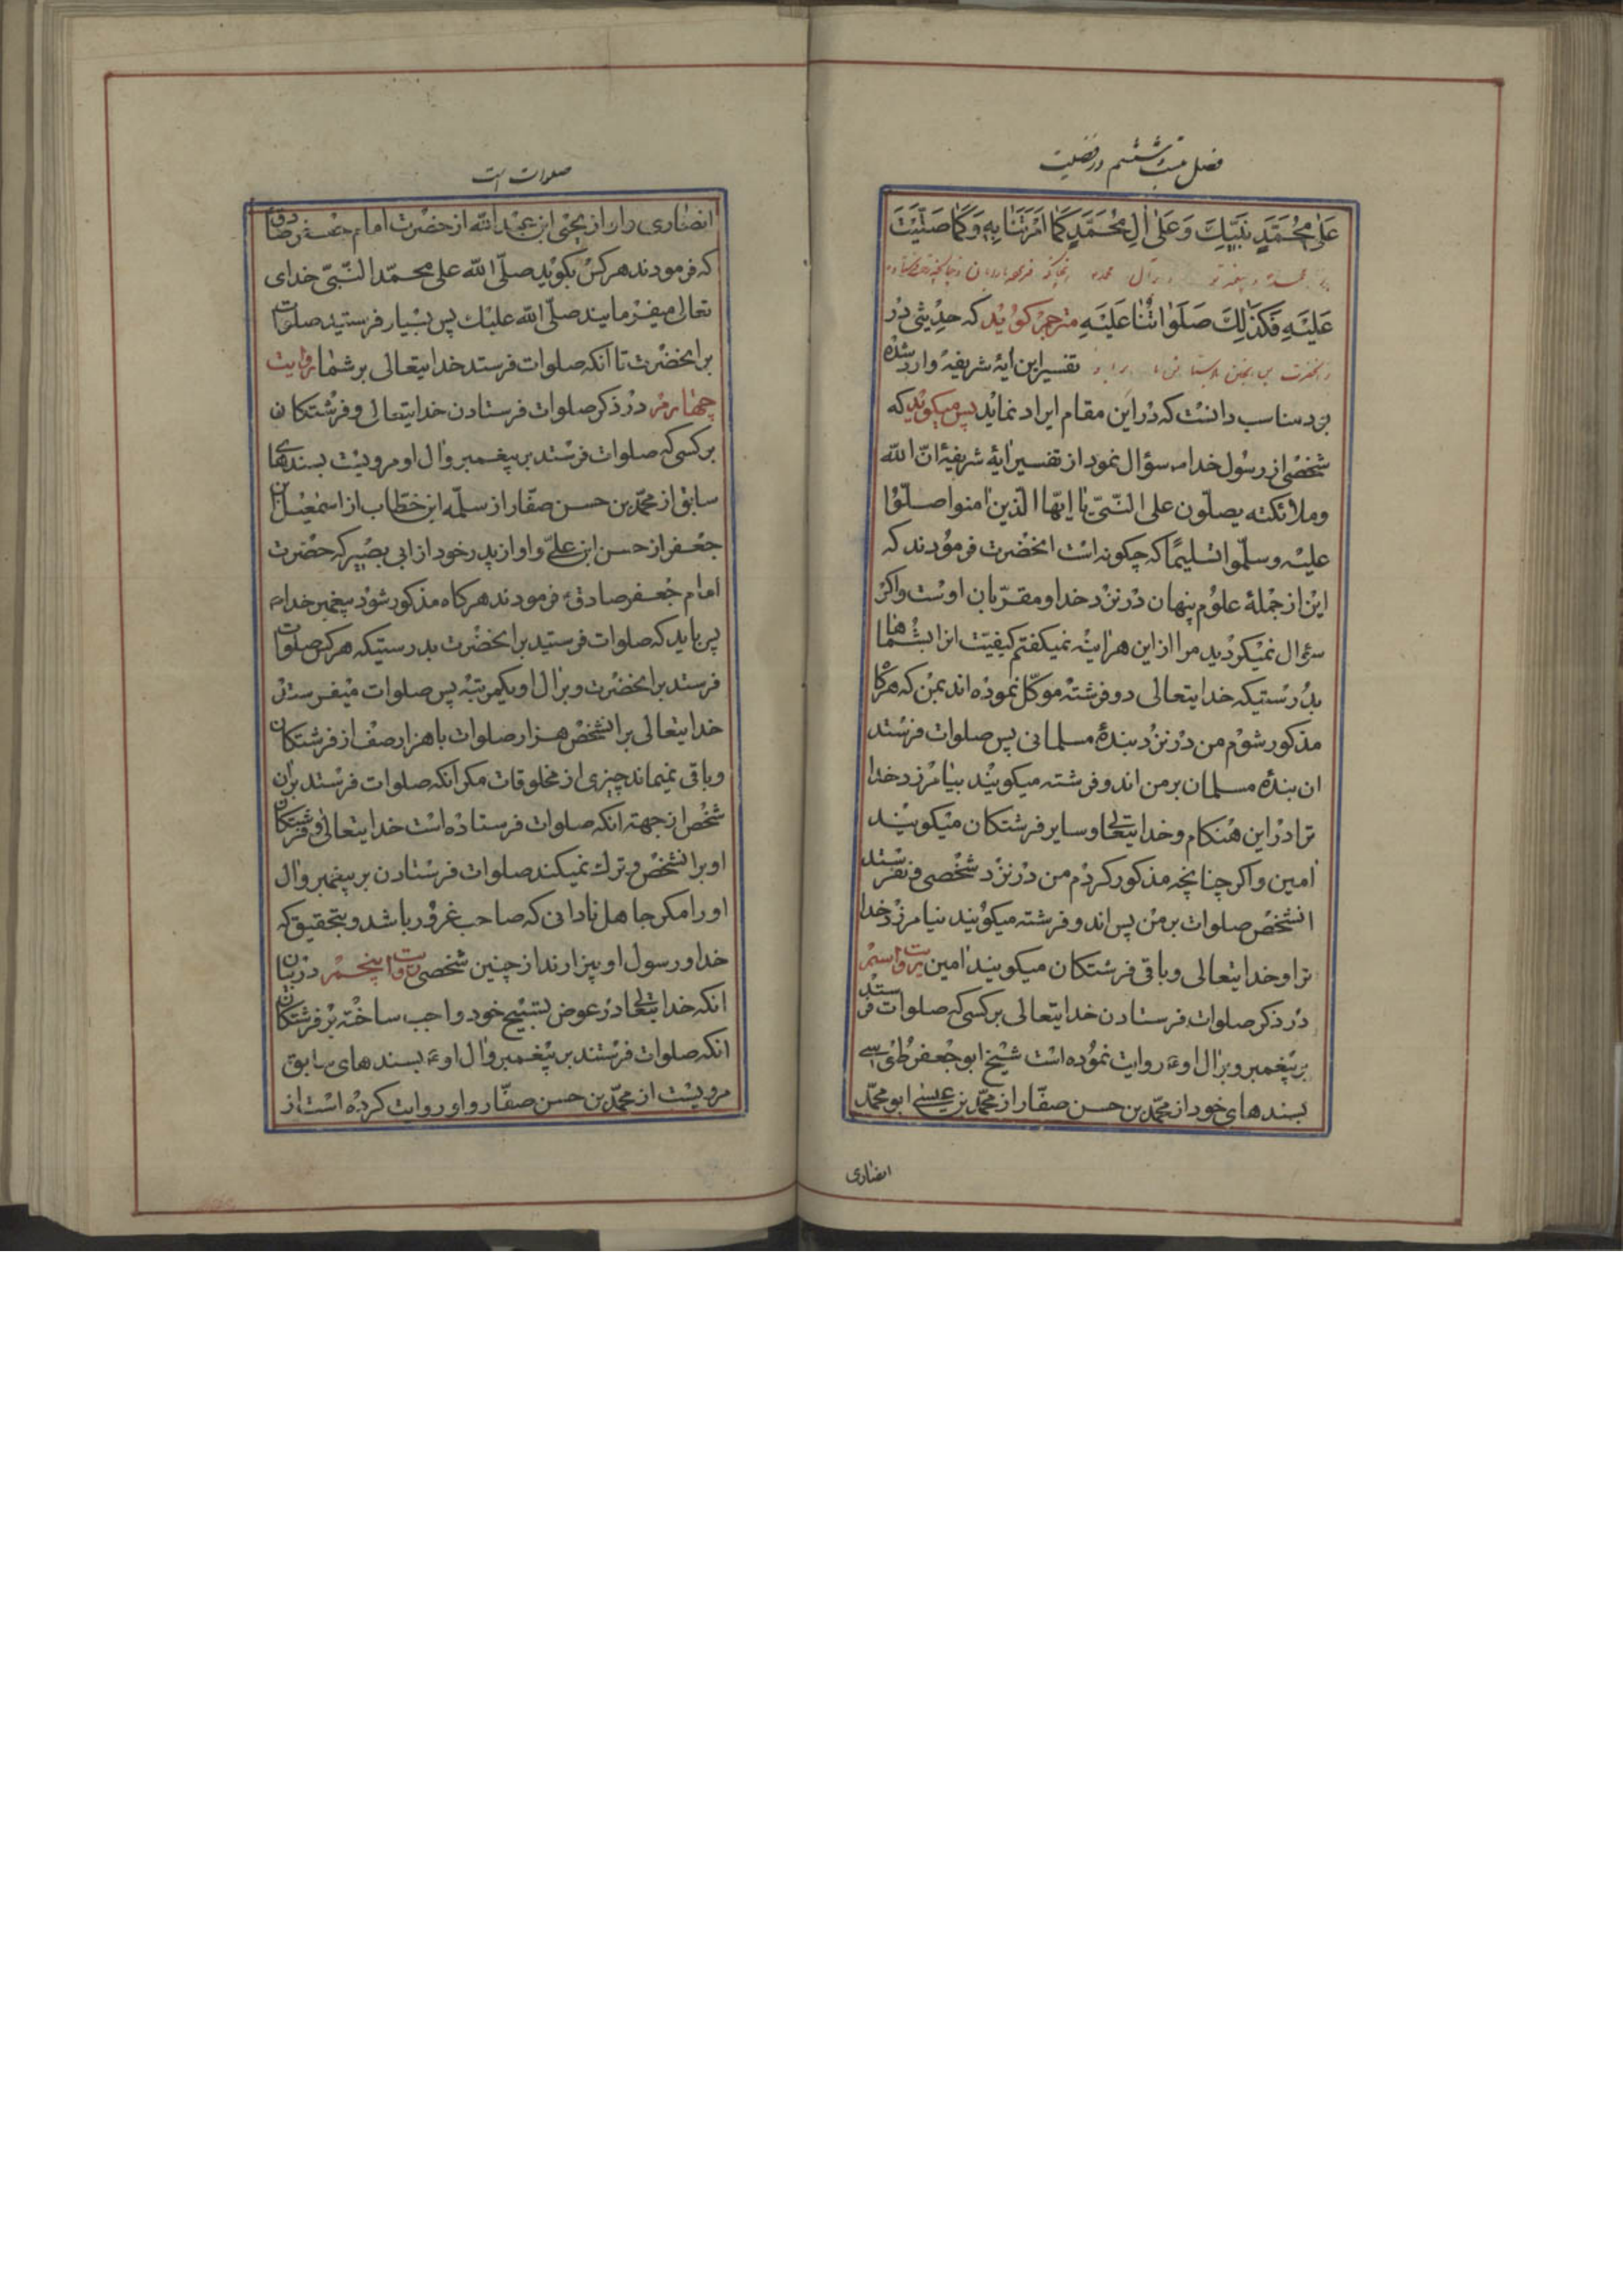 فصل بیست ششم در فضیلت
عَلیٰ مُحَمَّدٍ نَبِیِّكَ وَعَلیٰ اٰلِ مُحَمَّدٍ كَمٰا اَمَرْتَنٰا بِهِ وَكَمٰا صَلَّیْتَ
عَلَیْهِ فَكَذٰلِكَ صَلَوٰاتُنٰا عَلَیْهِ مترجم كوید كه حدیثی در
تفسیر این ایهٔ شریفهٔ وارد شده
بود مناسب دانست كه در این مقام ایراد نماید پس میكوید كه
شخصی از رسول خدا ص سؤال نمود از تفسیر ایهٔ شریفهٔ انّ الله
وملائكته یصلّون علی النّبیّ یا ایّها الّذین امنوا صلّوا
علیه وسلّموا تسلیمًا كه چكونه است انحضرت فرمودند كه
این از جملهٔ علوم پنهان در نزد خدا و مقرّبان اوست واكر
سؤال نمیكردید مرا از این هراینه نمیكفتم كیفیّت انرا بشماها
بدرستیكه خدایتعالی دو فرشته موكّل نموده اند بمن كه هركا
مذكور شوم من در نزد بندهٔ مسلمانی پس صلوات فرستد
ان بندهٔ مسلمان بر من اندو فرشته میكویند بیامرزد خدا
ترا در این هنكام وخدایتعالی و سایر فرشتكان میكویند
امین واكر چنانچه مذكور كردم من در نزد شخصی و نفرستد
انشخص صلوات بر من پس اندو فرشته میكویند نیامرزد خدا
ترا وخدایتعالی وباقی فرشتكان میكویند امین روایت سیم
در ذكر صلوات فرستادن خدایتعالی بر كسی كه صلوات فرستد
بر پیغمبر و بر ال او ع روایت نموده است شیخ ابو جعفر طوسی
بسندهای خود از محمّد بن حسن صفّار از محمّد بن عیسی ابو محمّد
انصاری
صلوات است
انصاری واو از یحیی ابن عبد الله از حضرت امام جعفر صادق
كه فرمودند هركس بكوید صلّی الله علی محمّد النّبیّ خدای
تعالی میفرمایند صلّی الله علیك پس بسیار فرستید صلوات
بر انحضرت تا آنكه صلوات فرستد خدایتعالی بر شما روایت
چهارم در ذكر صلوات فرستادن خدایتعالی و فرشتكان
بر كسی كه صلوات فرستد بر پیغمبر وال او مرویست بسندهای
سابق از محمّد بن حسن صفّار از سلمه ابن خطّاب از اسمعیل بن
جعفر از حسن ابن علی واو از پدر خود از ابی بصیر كه حضرت
امام جعفر صادق ع فرمودند هركاه مذكور شود پیغمبر خدا ص
پس باید كه صلوات فرستید بر انحضرت بدرستیكه هركس صلوات
فرستد بر انحضرت و بر ال او یكمرتبه پس صلوات میفرستد
خدایتعالی بر انشخص هزار صلوات با هزار صف از فرشتكان
وباقی نمیماند چیزی از مخلوقات مكر آنكه صلوات فرستد بر ان
شخص از جهته انكه صلوات فرستاده است خدایتعالی و فرشتكان
او بر انشخص و ترك نمیكند صلوات فرستادن بر پیغمبر وال
او را مكر جاهل نادانی كه صاحب غرور باشد و بتحقیق كه
خدا و رسول او بیزارند از چنین شخصی روایت پنجم در بیان
انكه خدایتعالی در عوض تسبیح خود واجب ساخته بر فرشتكان
انكه صلوات فرستند بر پیغمبر وال او ع بسندهای سابق
مرویست از محمّد بن حسن صفّار و او روایت كرده است از